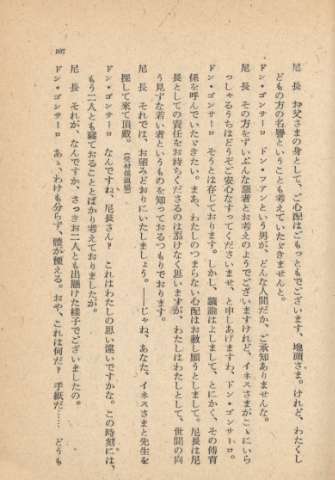 107
尼　長　お父さまの身として、ご心配はごもっともでございます、地頭さま。けれど、わたくし
どもの方の名譽ということも考えていたゞきませんと。
ドン・ゴンサーロ　ドン・フアンという男が、どんな人間だか、ご承知ありませんな。
尼　長　その方をずいぶんな惡者とお考えのようでございますけれど、イネスさまがこゝにいら
っしゃるうちはどうぞご安心なすってくださいませ、と申しあげますわ、ドン・ゴンサーロ。
ドン・ゴンサーロ　そうとは存じております。しかし、議論はよしまして、とにかく、その傳育
係を呼んでいたゞきたい。まあ、わたしのつまらない心配はお赦し願うとしまして。尼長は尼
長としての責任をお持ちくださるのは忝けなく思いますが、わたしはわたしとして、世間の向
う見ずな若い者というものを知っておるつもりでおります。
尼　長　それでは、お望みどおりにいたしましょう。――じゃね、あなた、イネスさまと先生を
探して來て頂戴。（受付係退場）
ドン・ゴンサーロ　なんですね、尼長さん？　これはわたしの思い違いですかな。この時刻には、
もう二人とも寢ておることとばかり考えておりましたが。
尼　長　それが、なんですか、さっきお二人とも出懸けた樣子でございましたの。
ドン・ゴンサーロ　あゝ、わけも分らず、膝が慄える。おや、これは何だ？　手紙だ……　どうも